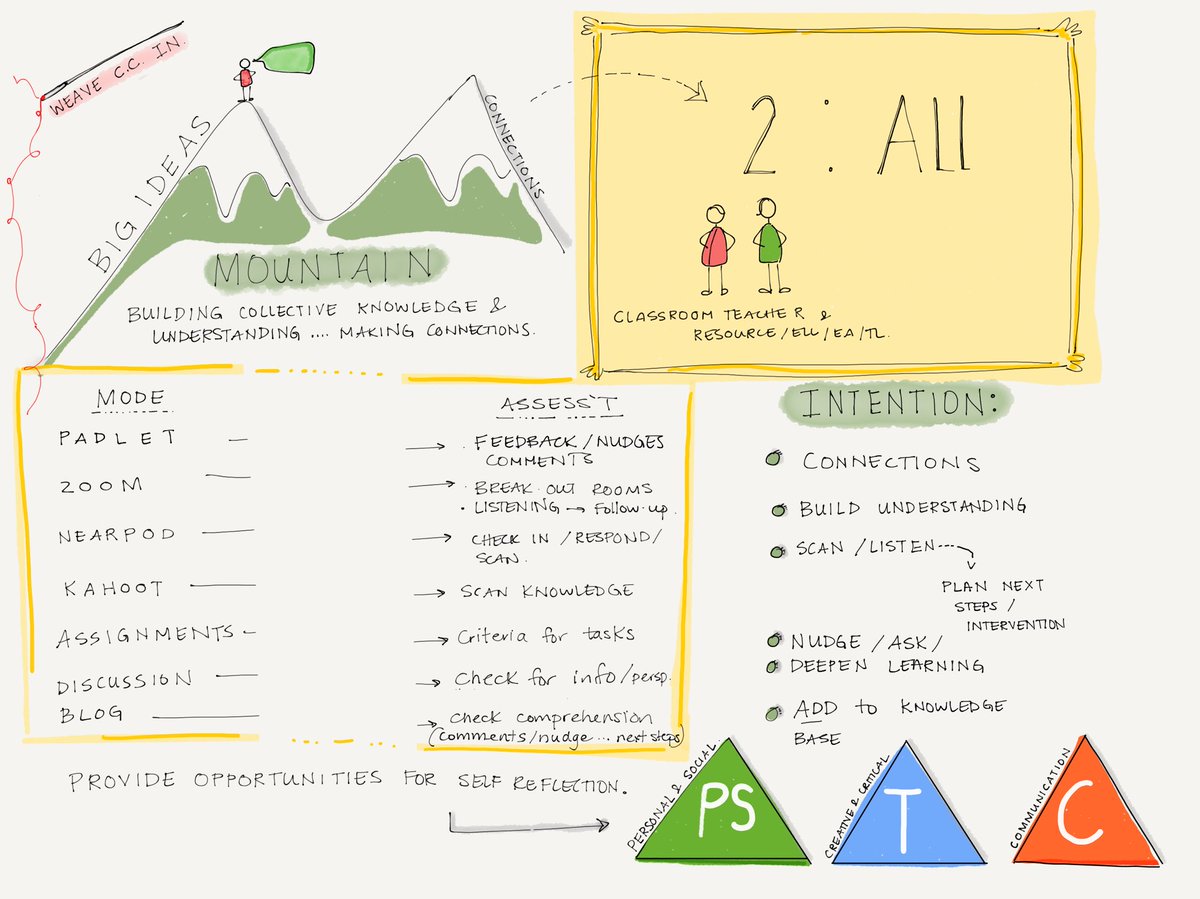 WEAVE C.C. IN.
BIG IDEAS
CONNECTIONS
MOUNTAIN
BUILDING COLLECTIVE KNOWLEDGE &
UNDERSTANDING .... MAKING CONNECTIONS.
2 : ALL
CLASSROOM TEACHER &
RESOURCE/ELL/EA/TL.
MODE
ASSESS'T
PADLET — → · FEEDBACK/NUDGES
COMMENTS
ZOOM — → · BREAK OUT ROOMS
· LISTENING → Follow-up.
NEARPOD — → CHECK IN /RESPOND/
SCAN.
KAHOOT — → SCAN KNOWLEDGE
ASSIGNMENTS — → Criteria for tasks
DISCUSSION — → Check for info/persp.
BLOG — → Check comprehension
(comments/nudge ... next steps)
INTENTION:
CONNECTIONS
BUILD UNDERSTANDING
SCAN /LISTEN
PLAN NEXT
STEPS /
INTERVENTION
NUDGE /ASK/
DEEPEN LEARNING
ADD to KNOWLEDGE
BASE
PROVIDE OPPORTUNITIES FOR SELF REFLECTION.
PERSONAL & SOCIAL
PS
CREATIVE & CRITICAL
T
COMMUNICATION
C